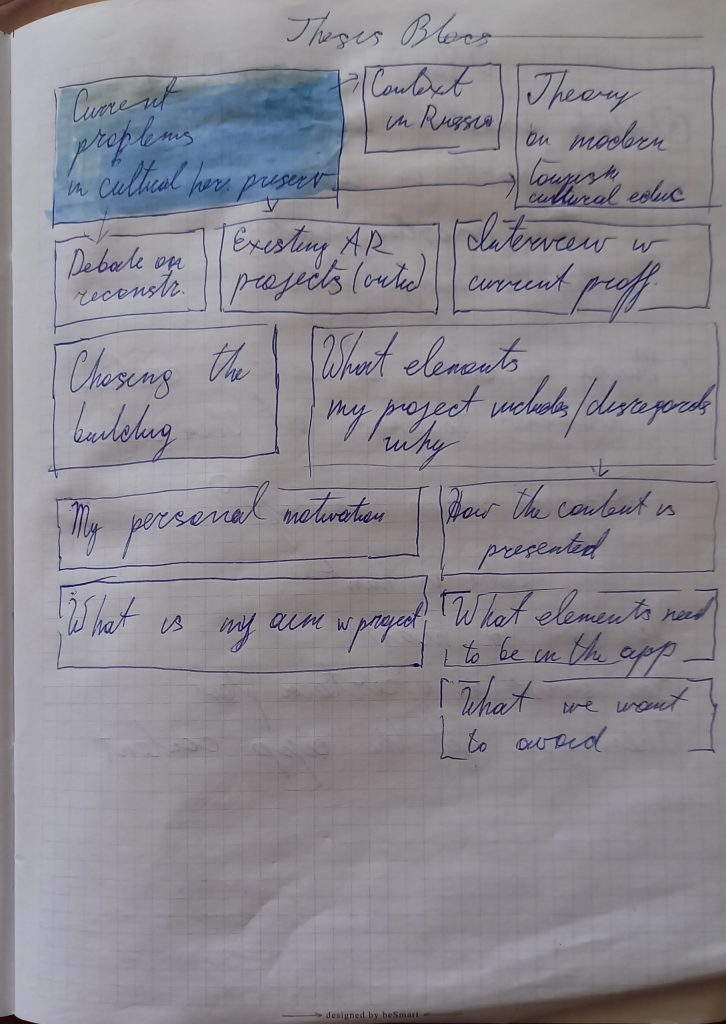 Thesis Blocs
Current
problems
in cultical her. preserv
Context
in Russia
Theory
on modern
tourism
cultural educ
Debate on
reconstr.
Existing AR
projects
Interview w
current proff.
Chosing the
building
What elements
my project includes/disregards
why
My personal motivation
How the content is
presented
What is my aim w project
What elements need
to be in the app
What we want
to avoid
designed by beSmart